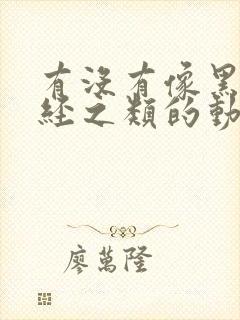 有沒有像黑
經之類的動
廖萬隆